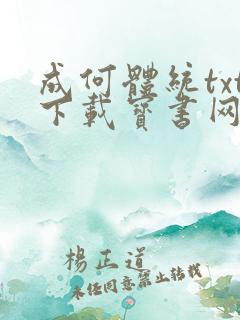 成何體統txt
下載寶書网
楊正道
未任同意禁止轉載